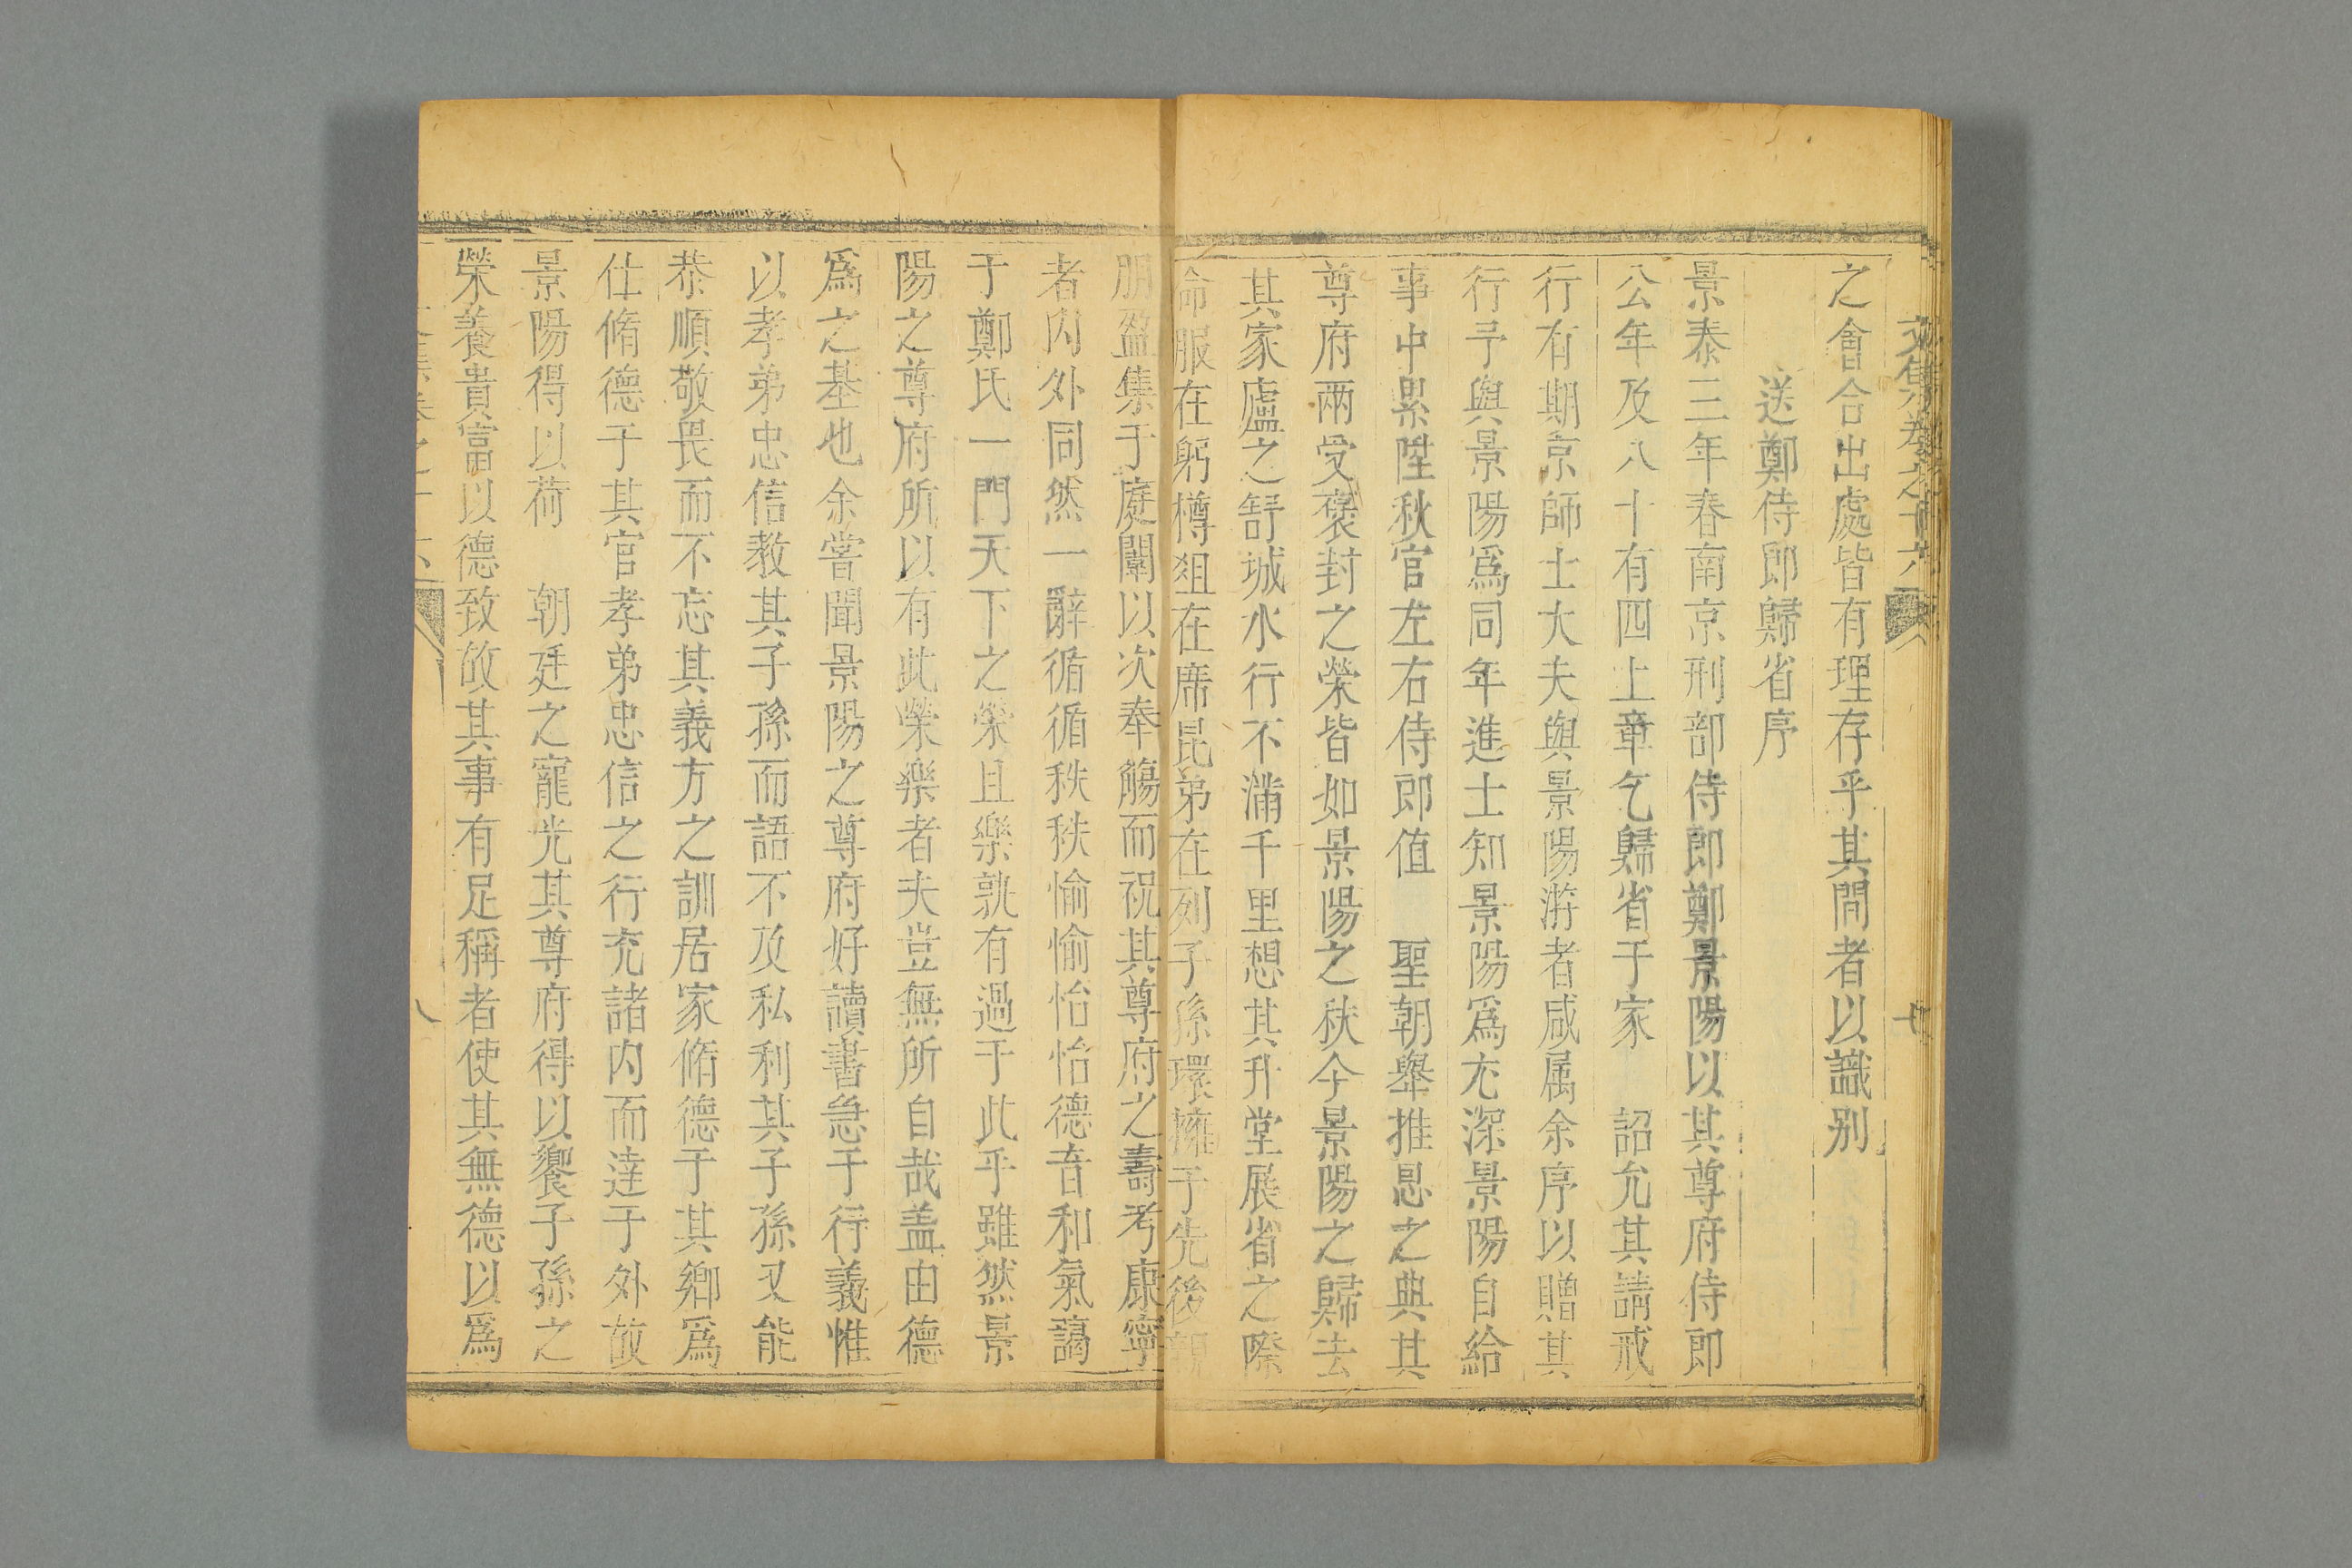 文集卷之十六
七
之會合出處皆有理存乎其間者以識别
送鄭侍郎歸省序
景泰三年春南京刑部侍郎鄭景陽以其尊府侍郎
公年及八十有四上章乞歸省于家　詔允其請戒
行有期京師士大夫與景陽游者咸属余序以贈其
行予與景陽爲同年進士知景陽爲尤深景陽自給
事中累陞秋官左右侍郎值　聖朝舉推恩之典其
尊府兩受褒封之榮皆如景陽之秩今景陽之歸去
其家廬之舒城水行不滿千里想其升堂展省之際
命服在躬樽俎在席昆弟在列子孫環擁于先後親
朋盈集于庭闈以次奉觴而祝其尊府之壽考康寧
者内外同然一辭循循秩秩愉愉怡怡德音和氣藹
于鄭氏一門天下之榮且樂孰有過于此乎雖然景
陽之尊府所以有此榮樂者夫豈無所自哉盖由德
爲之基也余嘗聞景陽之尊府好讀書急于行義惟
以孝弟忠信教其子孫而語不及私利其子孫又能
恭順敬畏而不忘其義方之訓居家脩德于其鄉爲
仕脩德于其官孝弟忠信之行充諸内而達于外故
景陽得以荷　朝廷之寵光其尊府得以饗子孫之
榮養貴富以德致故其事有足稱者使其無德以爲